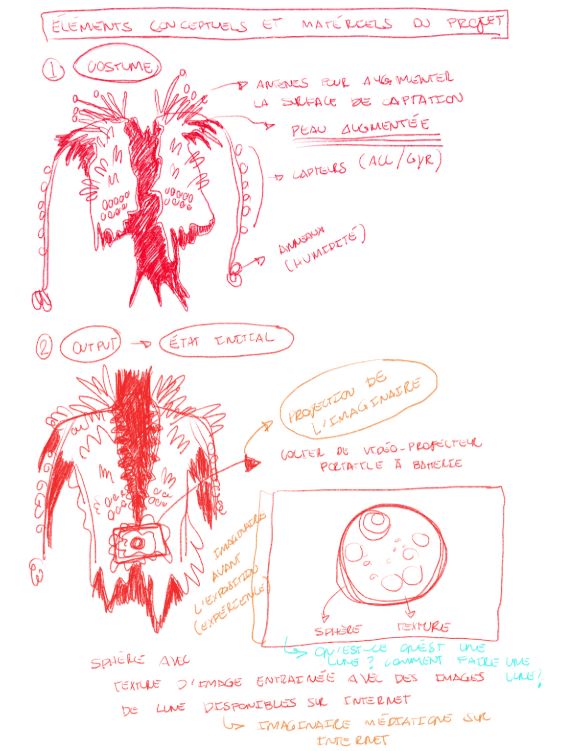 ÉLÉMENTS CONCEPTUELS ET MATÉRIELS DU PROJET
1 COSTUME
ANTENES POUR AUGMENTER
LA SURFACE DE CAPTATION
PEAU AUGMENTÉE
CAPTEURS (ACC/GYR)
ANNEAUX
(HUMIDITÉ)
2 OUTPUT → ÉTAT INITIAL
PROJECTION DE
L'IMAGINAIRE
COLIER DU VIDÉO-PROJECTEUR
PORTATILE À BATERIE
IMAGINAIRE
AVANT
L'EXPOSITION
(EXPÉRIENCE)
SPHÈRE TEXTURE
QU'EST-CE QU'EST UNE
LUNE? COMMENT FAIRE UNE
LUNE?
SPHÈRE AVEC
TEXTURE D'IMAGE ENTRAINÉE AVEC DES IMAGES
DE LUNE DISPONIBLES SUR INTERNET
IMAGINAIRE MÉDIATIONÉ SUR
INTERNET